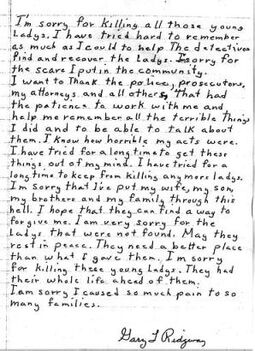 I'm sorry for killing all those young
Ladys. I have tried hard to remember
as much as I could to help The detectives
find and recover the Ladys. I sorry for
the scare I put in the community.
I want to Thank the police, prosecutors,
my attorneys and all others, That had
the patience to work with me and
help me remember all the terrible Things
I did and to be able to talk about
them. I know how horrible my acts were.
I have tried for a long time to get these
things out of my mind. I have tried for a
long time to keep from killing any more ladys.
I'm sorry that I've put my wife, my son,
my brothers and my family through this
hell. I hope that they can find a way to
forgive me. I am very sorry for the
Ladys that were not found. May they
rest in peace. They need a better place
than what I gave them. I'm sorry
for killing these young Ladys. They had
their whole life ahead of them.
I am sorry I caused so much pain to so
many families.
Gary L Ridgway